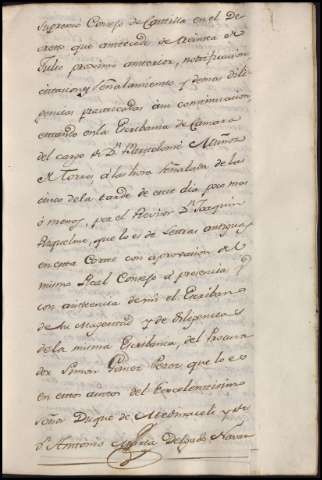 Supremo Consejo de Castilla en el De
creto que antecede de treinta de
Julio proximo anterior, notificacion
citacion, y señalamiento, y demas dili
gencias practicadas à su continuacion,
estando en la Escribania de Camara
del cargo de Dn. Bartolomé Muñoz
de Torres, à la hora señalada de las
cinco de la tarde de este dia poco mas
ó menos, por el Revisor Dn. Joaquin
Riquelme, que lo es de Letras antiguas
en esta Corte con aprovacion del
mismo Real Consejo à presencia, y
con asistencia de mi el Escribano
de Su Magestad y de Diligencias
de la misma Escribania, del Procura
dor Simon Gomez Perez que lo es
en estos autos del Excelentisimo
Señor Duque de Medinaceli y de
Dn. Antonio Maria Delgado